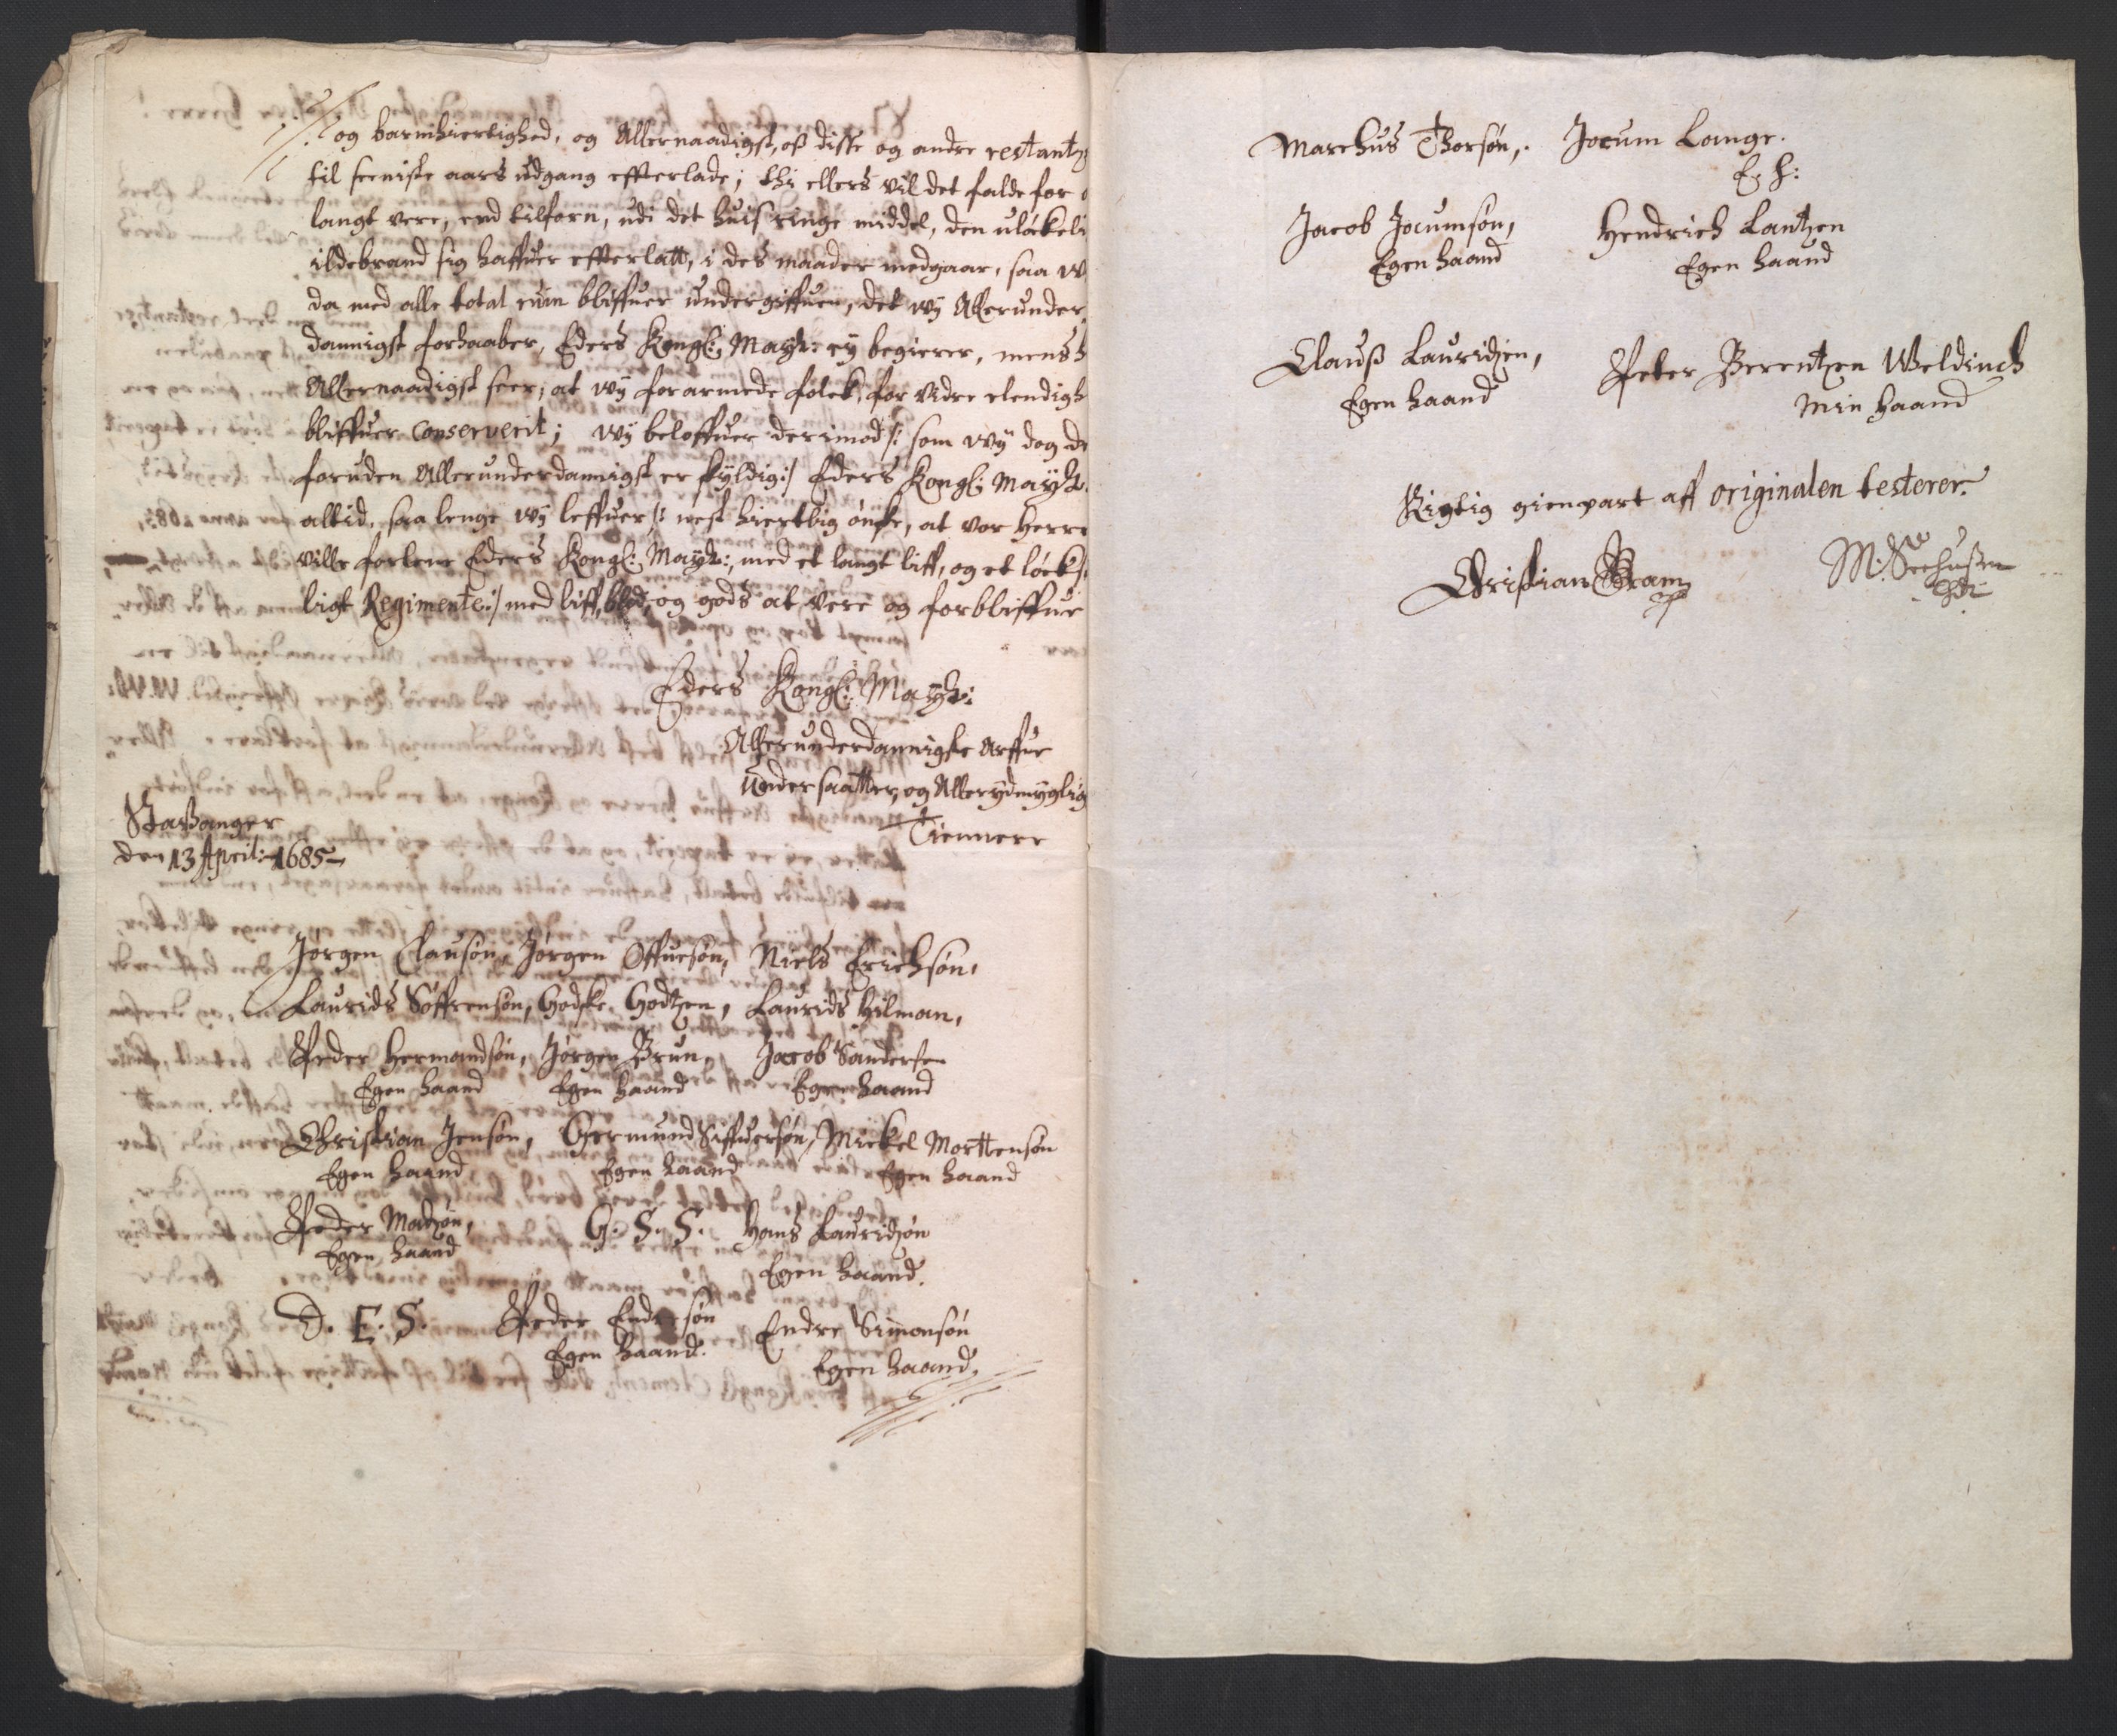 og barmhiertighed, og Allernaadigst, oß disse og andre restantz
til seeniste aars udgang effterlade; thi ellers vil det falde for
langt verre, end tilforn, udi det huis ringe middel, den uløckeli
ildebrand sig haffuer effterlatt, i des maader medgaar, saa w
da med alle total ruin bliffuer undergiffuen, det wij Allerunder
dannigst forhaaber, Eders Kongl: Mayt: ey begierer, mens h
Allernaadigst seer, at wij forarmede folck, for vidre elendigh
bliffuer conserverit; wij beloffuer derimod /: som wij dog de
foruden Allerunderdannigst er skyldig :/ Eders Kongl: Mayt.
altid, saa lenge wij leffuer /: nest hiertlig ønske, at vor Herre
ville forlene Eders Kongl: Mayt:, med et langt liff, og et løck
ligt Regimente :/ med liff, blod, og gods at vere og forbliffue
Eders Kongl: Mayt:
Allerunderdannigste Arffue
Undersaatter, og Allerydmygligs
Tiennere
Stavanger
den 13 April: 1685
Jørgen Clausøn, Jørgen Offuesøn, Niels Erichsøn,
Laurids Søffrensøn, Godske Godtzen, Laurids Hilman,
Peder Hermandsøn, Jørgen Brun, Jacob Sandersen
Egen haand Egen haand Egen haand
Christian Jensøn, Germund Siffuersøn, Mickel Morttensøn
Egen haand Egen haand Egen haand
Peder Madsøn, G. S. S. Hans Lauridsøn
Egen haand Egen haand.
D. E. S. Peder Endresøn Endre Simonsøn
Egen haand. Egen haand,
Marchus Thorsøn,. Jocum Lange.
E. H:
Jacob Jocumsøn, Hendrich Lantzen
Egen haand Egen haand
Clauß Lauridsen, Peter Berentzen Weldinch
Egen haand Min Haand
Rigtig gienpart aff originalen testerer.
Christian Gram M: Seehusen